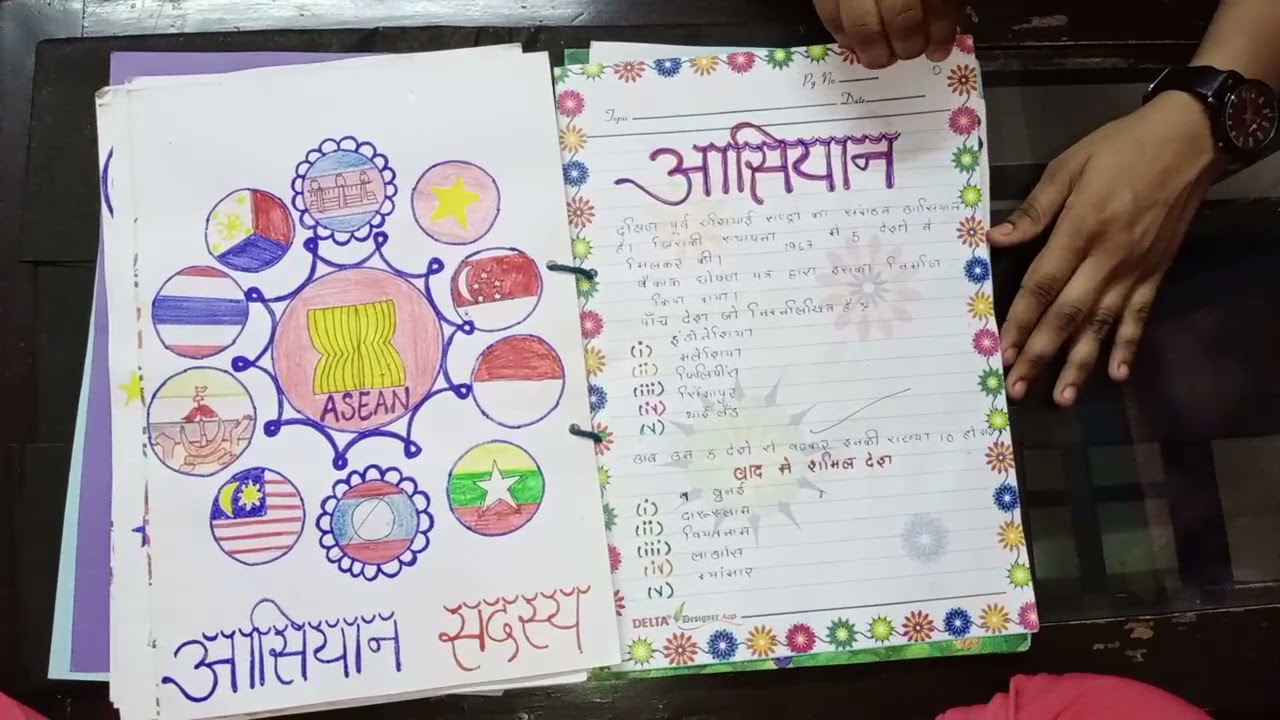 ASEAN
आसियान सदस्य
Pg No.
Date
Topic
आसियान
दक्षिण पूर्व एशियाई राष्ट्रो का संगठन आसियान
है। जिसकी स्थापना 1967 मे 5 देशो ने
मिलकर की।
बैंकाक घोषणा पत्र द्वारा इसका निर्माण
किया गया।
पाँच देश जो निम्नलिखित है :-
(i) इंडोनेशिया
(ii) मलेशिया
(iii) फिलिपींस
(iv) सिंगापुर
(v) थाईलैंड
अब उन 5 देशो से बढकर इनकी संख्या 10 हो गई
बाद मे शामिल देश
(i) ब्रुनई
(ii) दारूस्लाम
(iii) वियतनाम
(iv) लाओस
(v) म्यांमार
DELTA Designer App